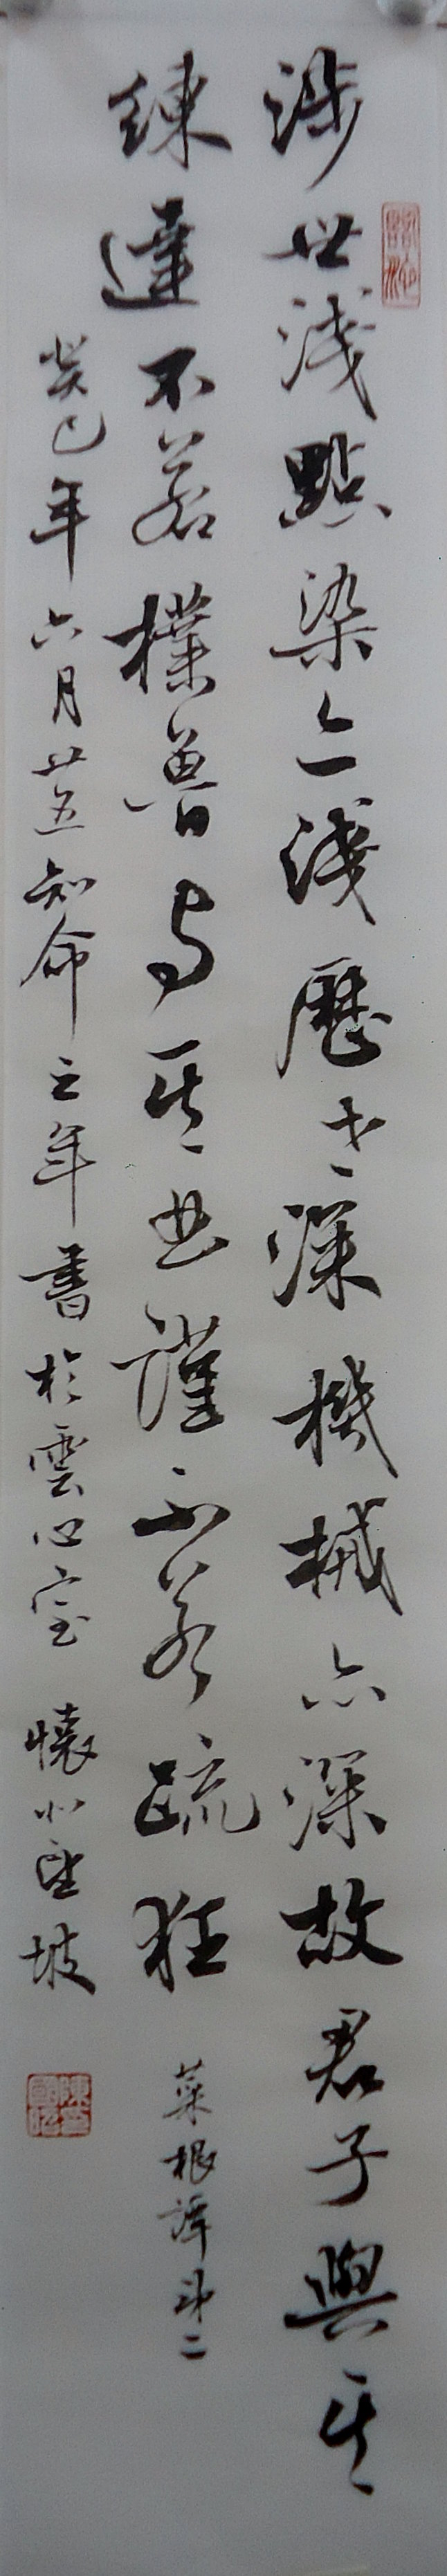 涉世淺點染亦淺歷事深機械亦深故君子與其
練達不若樸魯與其曲謹不若疏狂 菜根譚第二
癸巳年六月廿五知命之年書於雲心室 懷 坡